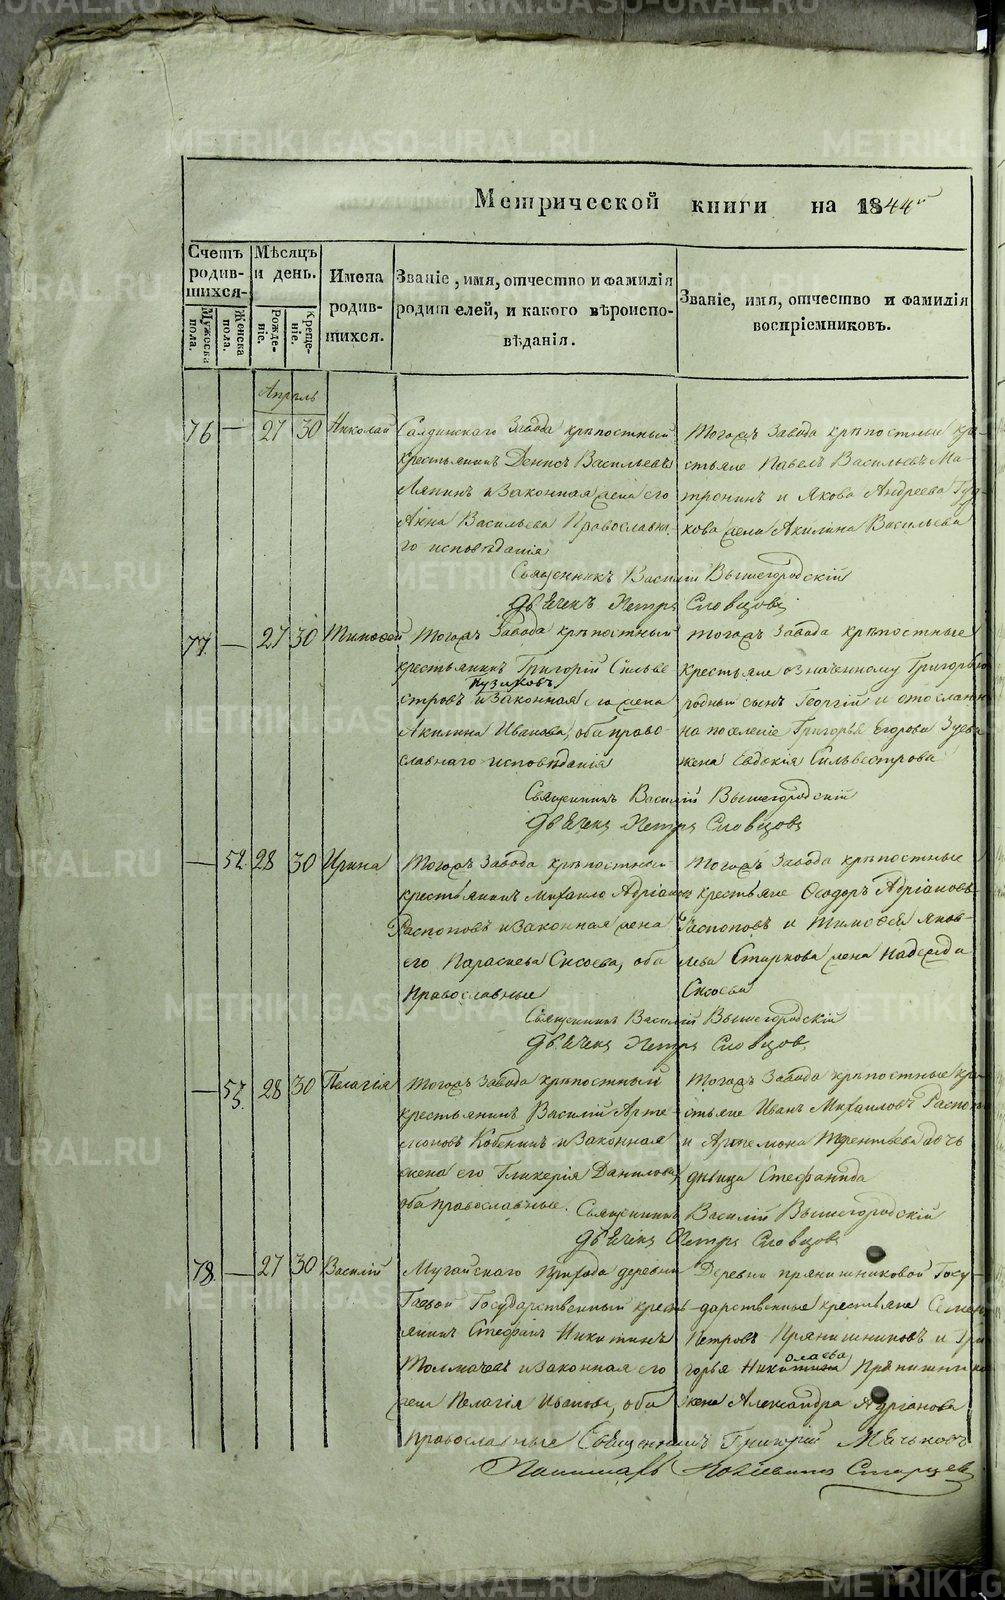 METRIKI.GASO-URAL.RU
Метрической книги на 1844й
Счетъ родившихся.
Мужеска пола.
Женска пола.
Мѣсяцъ и день.
Рожденіе.
Крещеніе.
Имена родившихся.
Званіе, имя, отчество и фамилія
родителей, и какого вѣроиспо-
вѣданія.
Званіе, имя, отчество и фамилія
воспріемниковъ.
Апрѣль
76 — 27 30 Николай
Салдинскаго Завода крѣпостный
крестьянинъ Денисъ Васильевъ
Ляпинъ и законная жена его
Анна Васильева Православна-
го исповѣданія
Тогожъ Завода крѣпостные кре-
стьяне Павелъ Васильевъ Ма-
тронинъ и Якова Андреева
кова жена Акилина Васильева
Священникъ Василій Вышегородскій
Дьячекъ Петръ Словцовъ
77 — 27 30 Тимофей
Тогожъ Завода крѣпостный
крестьянинъ Григорій Сильве
стровъ Пузаковъ и законная его жена
Акилина Иванова, оба право-
славнаго исповѣданія
Тогожъ Завода крѣпостные
крестьяне означенному Григорью
родный сынъ Георгій и отосланн
на поселеніе Григорья Егорова Зуева
жена Евдокія Сильвестрова
Священникъ Василій Вышегородскій
Дьячекъ Петръ Словцовъ
— 52. 28 30 Ирина
Тогожъ Завода крѣпостный
крестьянинъ Михаило Адріановъ
Распоповъ и законная жена
его Параскева Сисоева, оба
Православные
Тогожъ Завода крѣпостные
крестьяне Ѳеодоръ Адріановъ
Распоповъ и Тимофея Яков-
лева Старкова жена Надежда
Сисоева
Священникъ Василій Вышегородскій
Дьячекъ Петръ Словцовъ
— 53. 28 30 Пелагія
Тогожъ Завода крѣпостный
крестьянинъ Василій Арте-
моновъ Кобенинъ и законная
жена его Гликерія Данилова,
оба православные.
Тогожъ Завода крѣпостные кре
стьяне Иванъ Михаиловъ Распоп
и Артемона Терентьева дочь
дѣвица Стефанида
Священникъ Василій Вышегородскій
Дьячекъ Петръ Словцовъ
78. — 27 30 Василій
Мугайскаго Прихода деревни
Гаевой Государственный кресть-
янинъ Стефанъ Никитинъ
Толмачевъ и законная его
жена Пелагія Иванова, оба
Православные
Деревни прянишниковой Госу-
дарственные крестьяне Семенъ
Петровъ Прянишниковъ и Гри
горья Николаева Прянишникова
жена Александра Адріанова
Священникъ Григорій Мячковъ
Пономарь Старцевъ